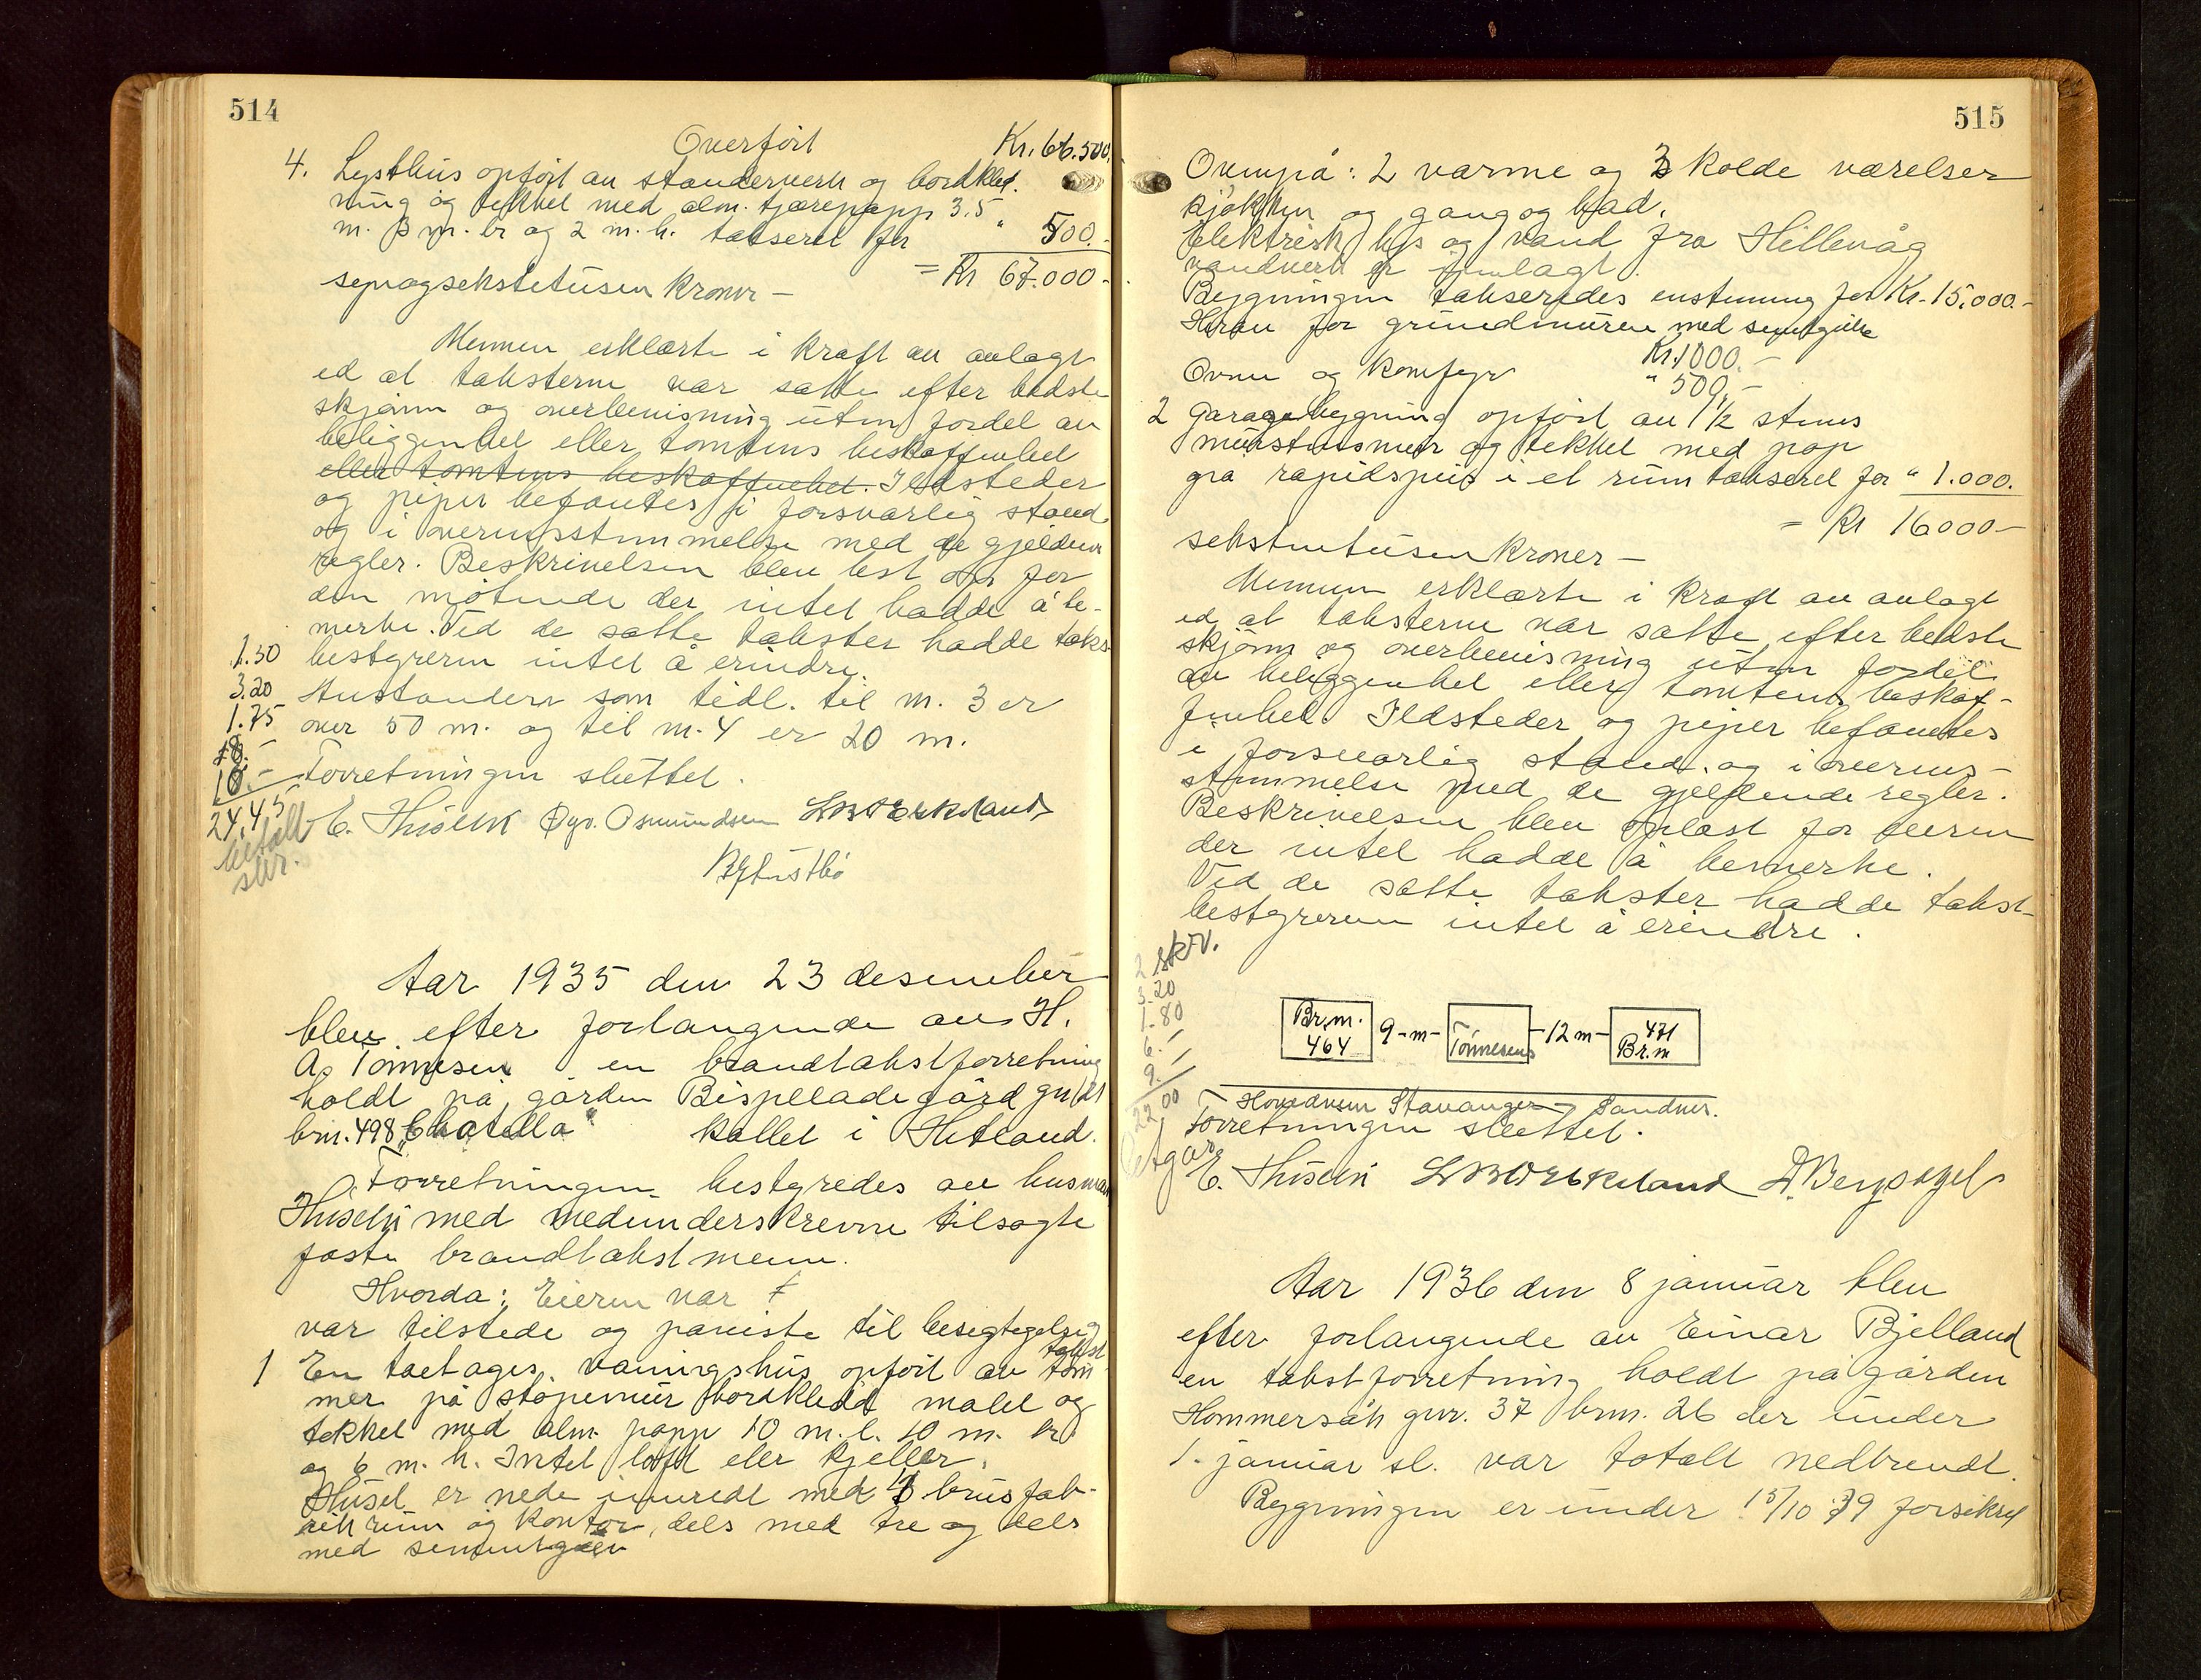 514
Overført Kr. 66.500,
4. Lysthus opført av standerverk og bordkled.
ning og tekket med alm. tjærepapp 3.5
m. 3 m. br og 2 m. h. takseret for " 500.-
= Kr 67.000.-
syvogsekstitusen kroner –
Mennen erklærte i kraft av avlagt
ed at taksterne var satte efter bedste
skjønn og overbevisning uten fordel av
beliggenhet eller tomtens beskaffenhet
eller tomtens beskaffenhet. Ildsteder
og piper befantes i forsvarlig stand
og i overensstemmelse med de gjeldene
regler. Beskrivelsen blev lest op for
den møtende der intet hadde å be-
merke. Ved de satte takster hadde takst
bestyreren intet å erindre.
Avstanden som tidl. til m. 3 er
over 50 m. og til m. 4 er 20 m.
Forretningen sluttet.
1.50
3.20
1.75
8.-
10.-
24.45
betalt
skr.
E. Husebø Øyv. Osmundsen
Aar 1935 den 23 desember
blev efter forlangende av H.
A. Tønnesen en brandtakstforretning
holdt på gården Bispeladegård gnr
brn. 498 "Chatella" kallet i Hetland.
Forretningen bestyredes av lensmann
Husebø med medunderskrevne tilsagte
faste brandtakstmenn.
Hvorda: Eieren var
var tilstede og paviste til besigtigelse og
takst
1 En toetages vaningshus opført av tøm-
mer på støpemur bordkledd malet og
tekket med alm. papp 10 m. l. 10 m. br
og 6 m. h. Intet loft eler kjeller.
Huset er nede innredt med brusfab-
rik rum og kontor, dels med tre og dels
med sementgulv
515
Ovenpå: 2 varme og 3 kolde værelser
kjøkken og gang og bad.
Elektrisk lys og vand fra Hillevåg
vandverk er innlagt.
Bygningen takseredes enstemmig for Kr. 15.000.-
Herav for grundmuren med sementgulve
Kr. 1000.-
Ovner og komfyr " 500,-
2 Garagebygning opført av 1½ stens
murstensmur og tekket med pap
pa rapidspær i et rum takseret for " 1.000.
= Kr 16000.-
sekstentusen kroner –
Mennen erklærte i kraft av avlagt
ed at taksterne var satte efter bedste
skjønn og overbevisning uten fordel
av beliggenhet eller tomtens beskaf-
fenhet. Ildsteder og piper befantes
i forsvarlig stand og i overens-
stemmelse med de gjeldende regler.
Beskrivelsen blev oplæst for eieren
der intet hadde å bemerke.
Ved de satte takster hadde takst-
bestyreren intet å erindre.
2 skr.
3.20
1.80
6.-
9.-
22.00
Br.m. 464 9-m- Tønnesens -12 m- 471 Br.m
Hovedveien Stavanger – Sandnes.
Forretningen sluttet.
E. Husebø
Aar 1936 den 8 januar blev
efter forlangende av Einar Bjelland
en takstforretning holdt på gården
Hommersåk gnr. 37 brn. 26 der under
1. januar sl. var totalt nedbrendt.
Bygningen er under 15/10 39 forsikret